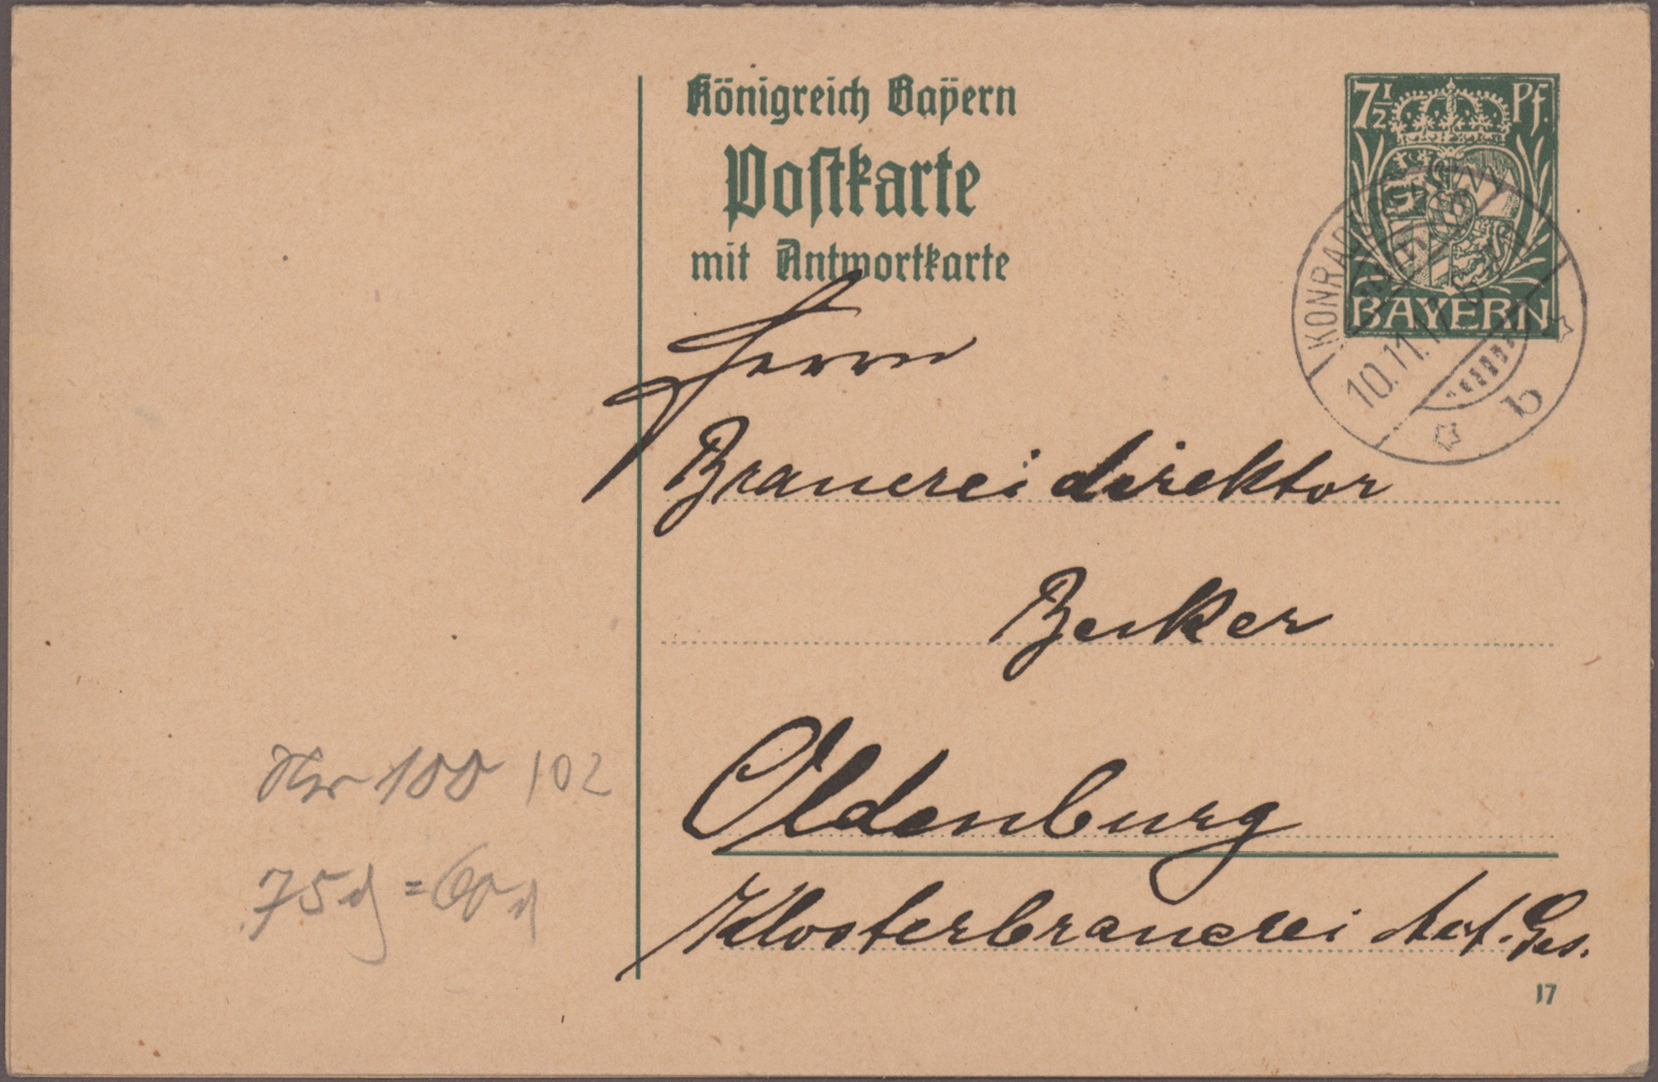 Königreich Bayern
Postkarte
mit Antwortkarte
7½ Pf.
BAYERN
10.11.
b
Herrn
Brauereidirektor
Becker
Oldenburg
Klosterbrauerei Act. Ges.
17
Nr 100 102
75 = 60